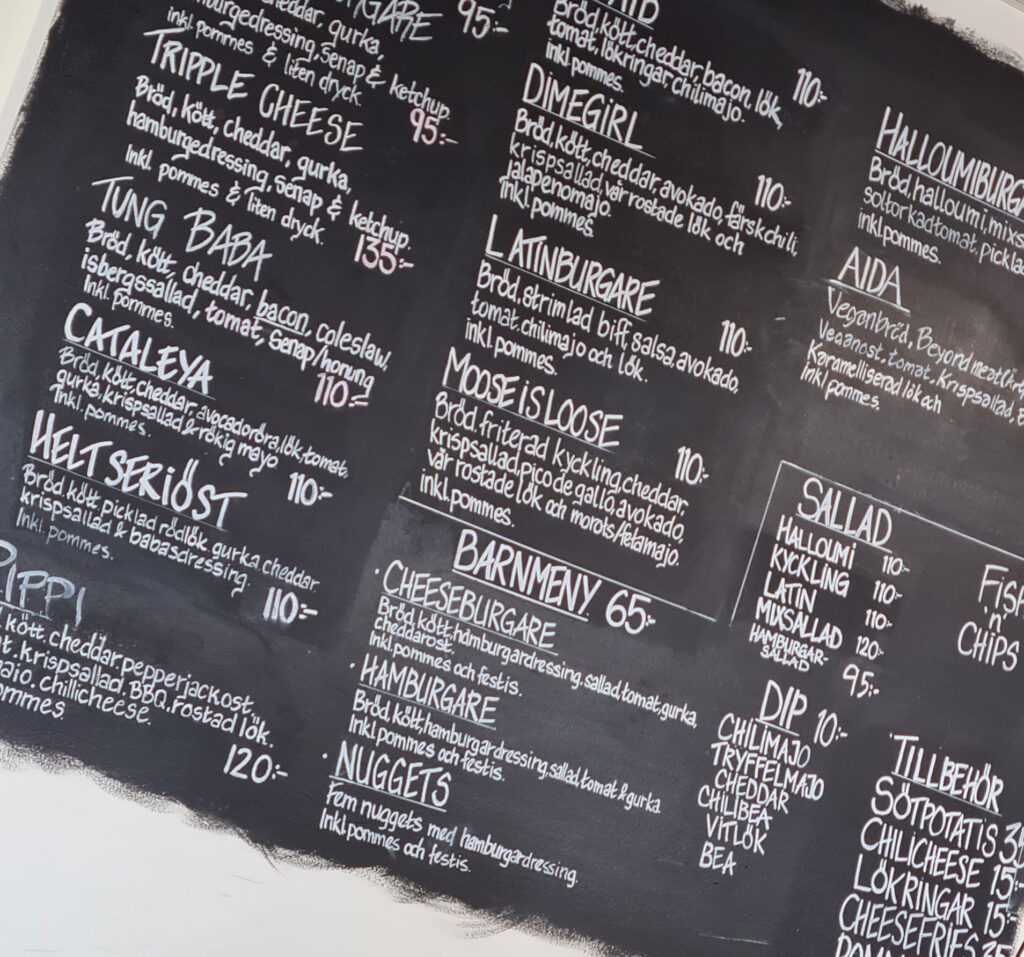 95:-
cheddar, gurka,
hamburgedressing, senap & ketchup.
inkl. pommes & liten dryck.
95:-
TRIPPLE CHEESE
Bröd, kött, cheddar, gurka,
hamburgedressing, senap & ketchup.
Inkl. pommes & liten dryck.
135:-
TUNG BABA
Bröd, kött, cheddar, bacon, coleslaw,
isbergssallad, tomat, senap/honung
Inkl. pommes.
110:-
CATALEYA
Bröd, kött, cheddar, avocadoröra, lök, tomat,
gurka, krispsallad & rökig mayo
Inkl. pommes.
110:-
HELT SERIÖST
Bröd, kött picklad rödlök, gurka cheddar
krispsallad & babasdressing.
Inkl. pommes.
110:-
PIPPI
kött, cheddar, pepperjackost,
krispsallad, BBQ, rostad lök,
chillicheese.
120:-
Bröd, kött, cheddar, bacon, lök,
tomat, lökringar, chilimajo.
inkl pommes.
110:-
DIMEGIRL
Bröd, kött, cheddar, avokado, färsk chili,
krispsallad, vår rostade lök och
jalapenomajo.
Inkl pommes.
110:-
LATINBURGARE
Bröd, strimlad biff, salsa, avokado,
tomat, chilimajo och lök.
inkl pommes.
110:-
MOOSE iS LOOSE
Bröd, friterad kyckling, cheddar,
krispsallad, pico de gallo, avokado,
vår rostade lök och morots/fetamajo.
inkl pommes.
110:-
BARNMENY 65:-
· CHEESEBURGARE
Bröd, kött, hamburgardressing, sallad, tomat, gurka,
cheddarost.
Inkl pommes och festis.
· HAMBURGARE
Bröd, kött, hamburgardressing, sallad, tomat & gurka.
Inkl pommes och festis.
· NUGGETS
Fem nuggets med hamburgardressing.
Inkl pommes och festis.
HALLOUMIBURG
Bröd, halloumi, mixs
soltorkad tomat, pickla
inkl pommes.
AIDA
Veganbröd, Beyond meat
Veganost, tomat, Krispsallad,
Karamelligerad lök och
inkl pommes.
SALLAD
HALLOUMI 110:-
KYCKLING 110:-
LATIN 110:-
MIXSALLAD 120:-
HAMBURGAR-
SALLAD 95:-
DIP 10:-
CHILIMAJO
TRYFFELMAJO
CHEDDAR
CHILIBEA
VITLÖK
BEA
FISH
'n'
CHIPS
TILLBEHÖR
SÖTPOTATIS
CHILICHEESE 15:-
LÖKRINGAR 15:-
CHEESEFRIES 35